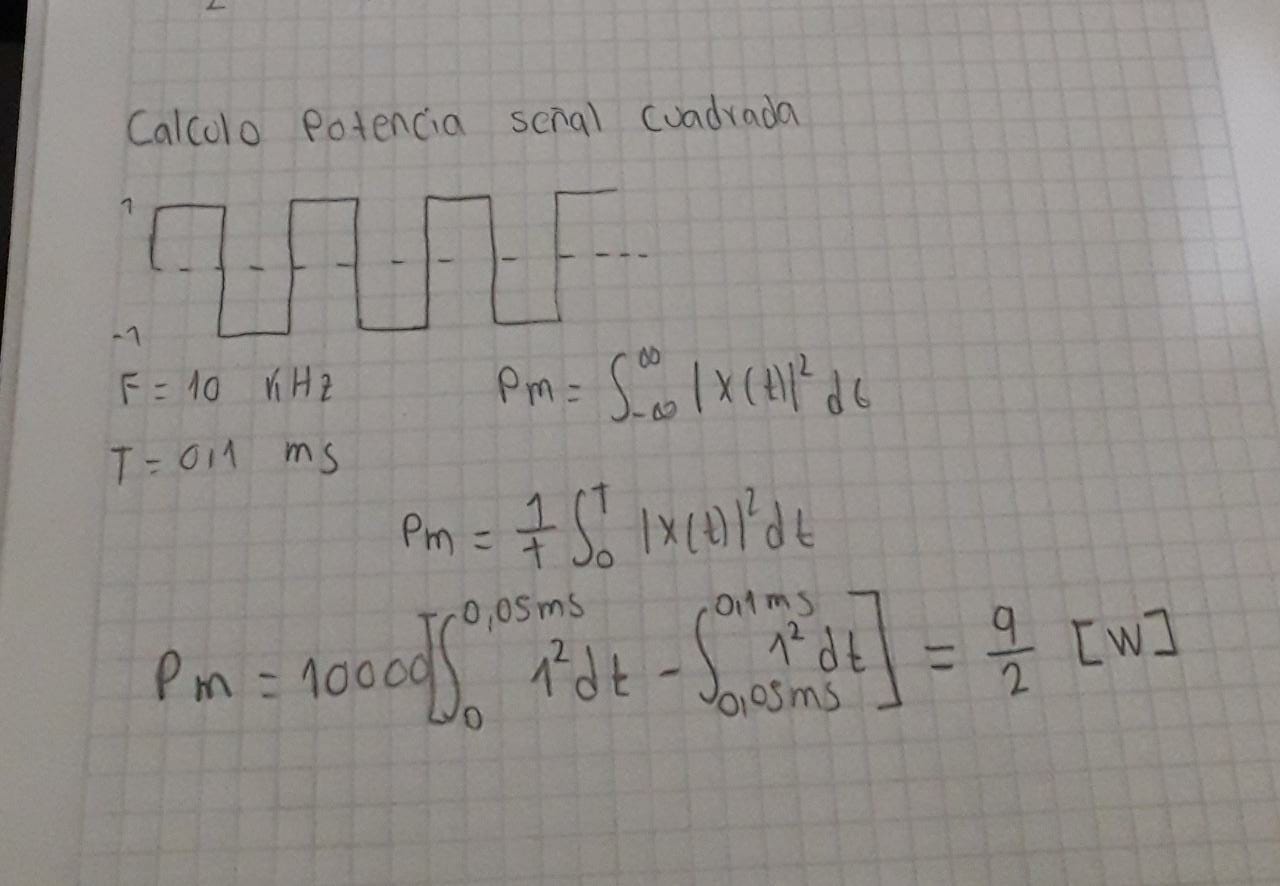 Calculo Potencia señal cuadrada
1
-1
F = 10 KHz
Pm = ∫_{-∞}^{∞} |x(t)|² dt
T = 0,1 ms
Pm = 1/T ∫_0^T |x(t)|² dt
Pm = 10000[∫_0^{0,05ms} 1² dt - ∫_{0,05ms}^{0,1ms} 1² dt] = 9/2 [W]